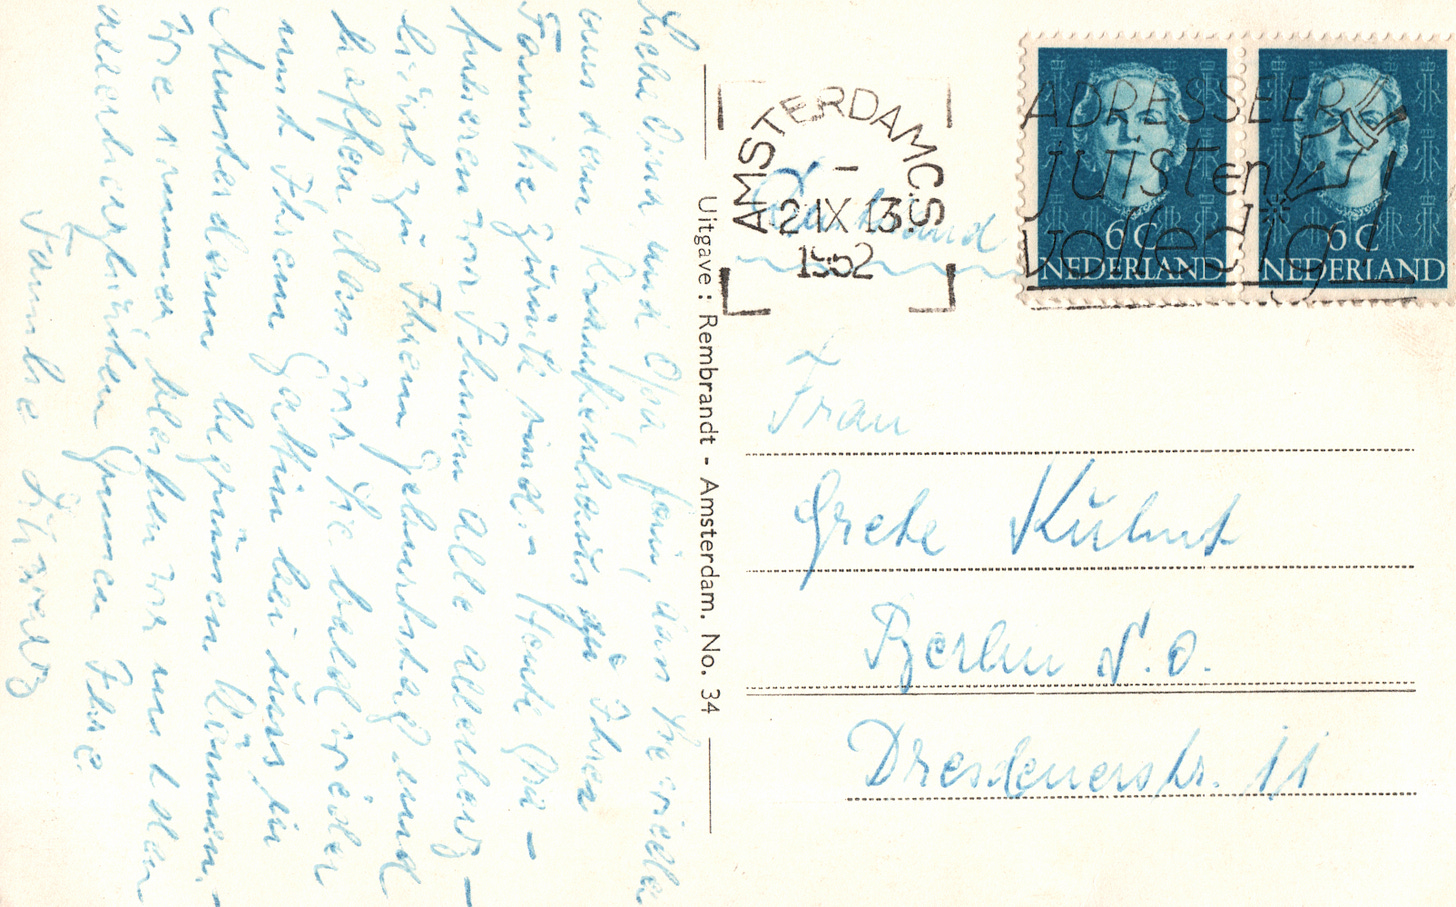 Liebe Oma und Opa, fein, dass Sie wieder
aus dem Krankenhaus zu Ihrer
Familie zurück sind. – Heute gra-
tulieren wir Ihnen alle allerherz-
lichst zu Ihrem Geburtstag und
hoffen dass wir Sie bald wieder
mit Ihrem Gatten bei uns in
Amsterdam begrüssen können. –
Wie immer bleiben wir mit den
allerherzlichsten Grüssen Ihre
Familie
Uitgave : Rembrandt - Amsterdam. No. 34
AMSTERDAM C.S
2 IX 13
1952
ADRESSEER
JUISTEN
Volledig!
6 C
NEDERLAND
6 C
NEDERLAND
Deutschland
Frau
Grete Kühnt
Berlin N.O.
Dresdenerstr. 11